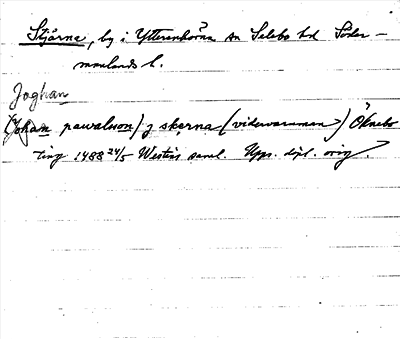 Stjärna, by i Ytterenhörna sn Selebo hd Söder-
manlands l.
Joghan
(Joham pawalsson) j skerna (viderwaruman) Öknebo
ting 1488 24/5 Westins saml. Upps. dipl. orig.